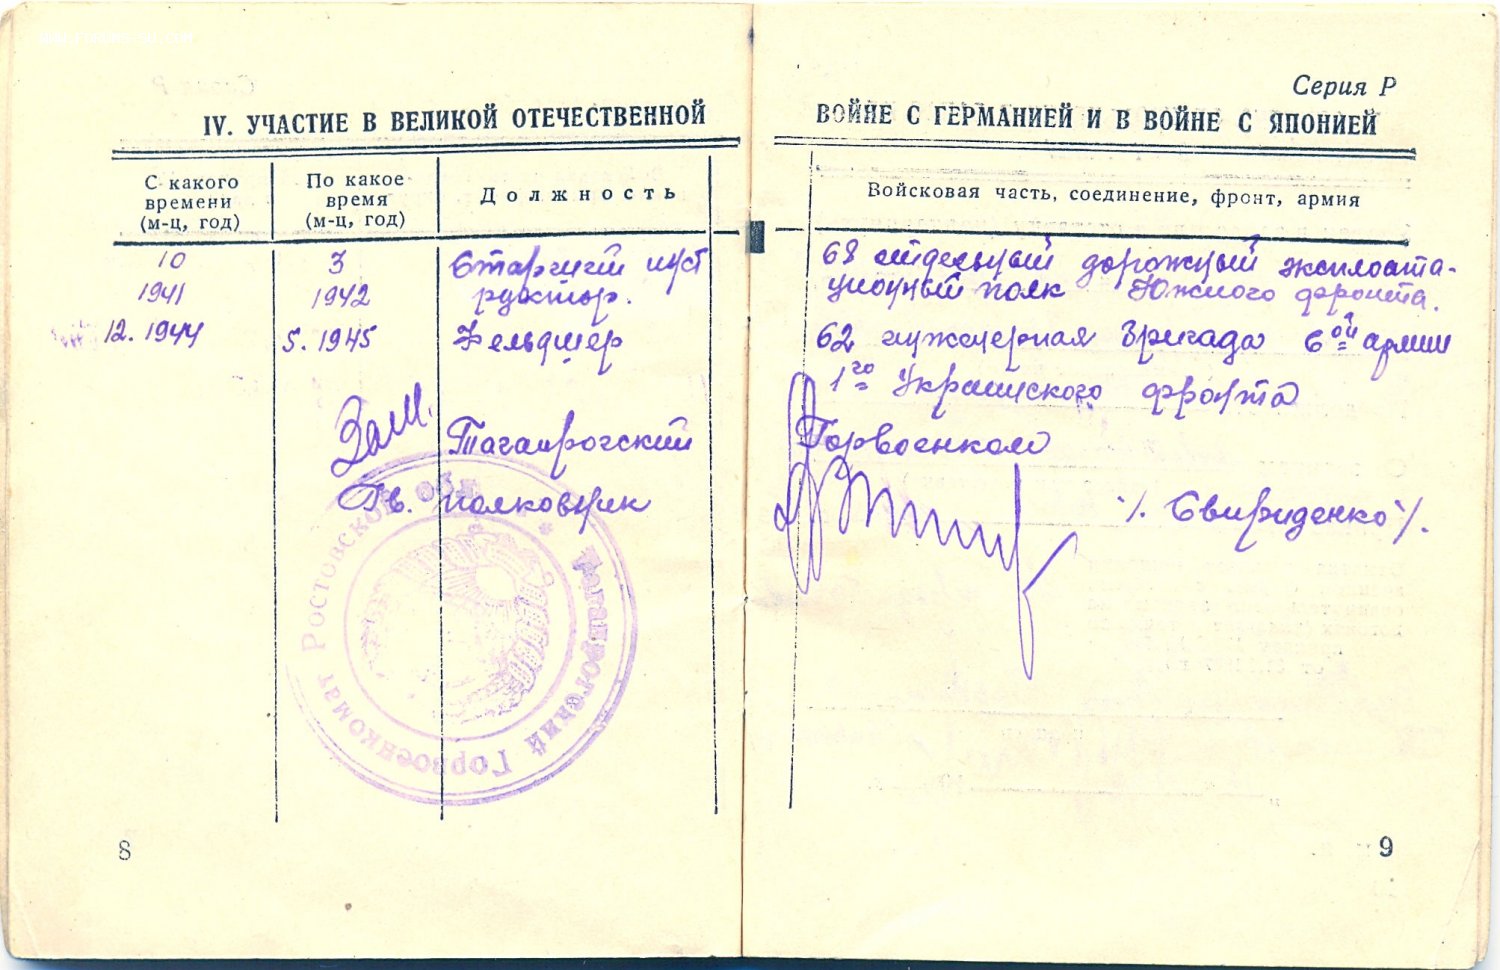 Серия Р
IV. УЧАСТИЕ В ВЕЛИКОЙ ОТЕЧЕСТВЕННОЙ
ВОЙНЕ С ГЕРМАНИЕЙ И В ВОЙНЕ С ЯПОНИЕЙ
С какого
времени
(м-ц, год)
По какое
время
(м-ц, год)
Должность
Войсковая часть, соединение, фронт, армия
10
1941
3
1942
Старший инст
руктор.
68 отдельный дорожный эксплоата-
ционный полк Южного фронта.
12. 1944
5. 1945
Фельдшер
62 инженерная бригада 6ой армии
1го Украинского фронта
Зам.
Таганрогский
Горвоенком
Гв. полковник
/. Свириденко /.
Ростовской обл
* Таганрогский Горвоенкомат
8
9